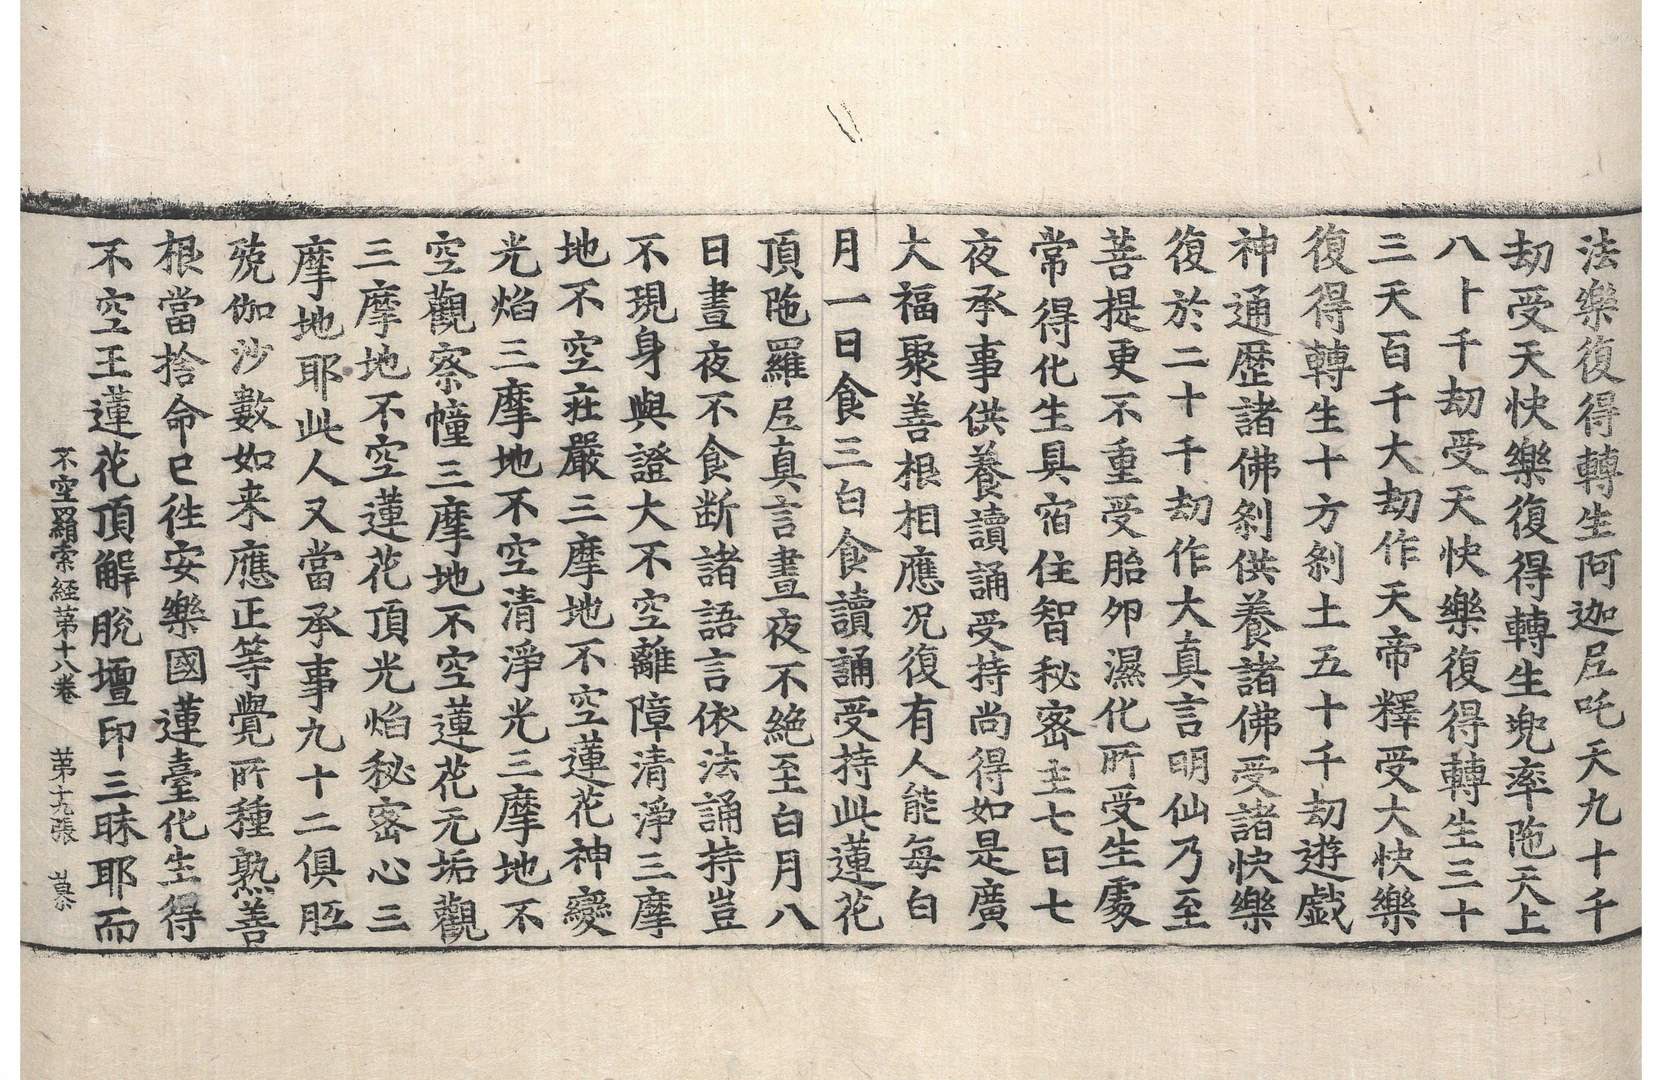 法樂復得轉生阿迦尼吒天九十千
劫受天快樂復得轉生兜率陁天上
八十千劫受天快樂復得轉生三十
三天百千大劫作天帝釋受大快樂
復得轉生十方刹土五十千劫遊戲
神通歷諸佛刹供養諸佛受諸快樂
復於二十千劫作大真言明仙乃至
菩提更不重受胎卵濕化所受生處
常得化生具宿住智秘密主七日七
夜承事供養讀誦受持尚得如是廣
大福聚善根相應况復有人能每白
月一日食三白食讀誦受持此蓮花
頂陁羅尼真言晝夜不絶至白月八
日晝夜不食断諸語言依法誦持豈
不現身與證大不空離障清淨三摩
地不空莊嚴三摩地不空蓮花神變
光焰三摩地不空清淨光三摩地不
空觀察幢三摩地不空蓮花无垢觀
三摩地不空蓮花頂光焰秘密心三
摩地耶此人又當承事九十二俱胝
殑伽沙數如来應正等覺所種熟善
根當捨命已往安樂國蓮臺化生得
不空王蓮花頂解脫壇印三昧耶而
不空羂索経苐十八卷 苐十九張